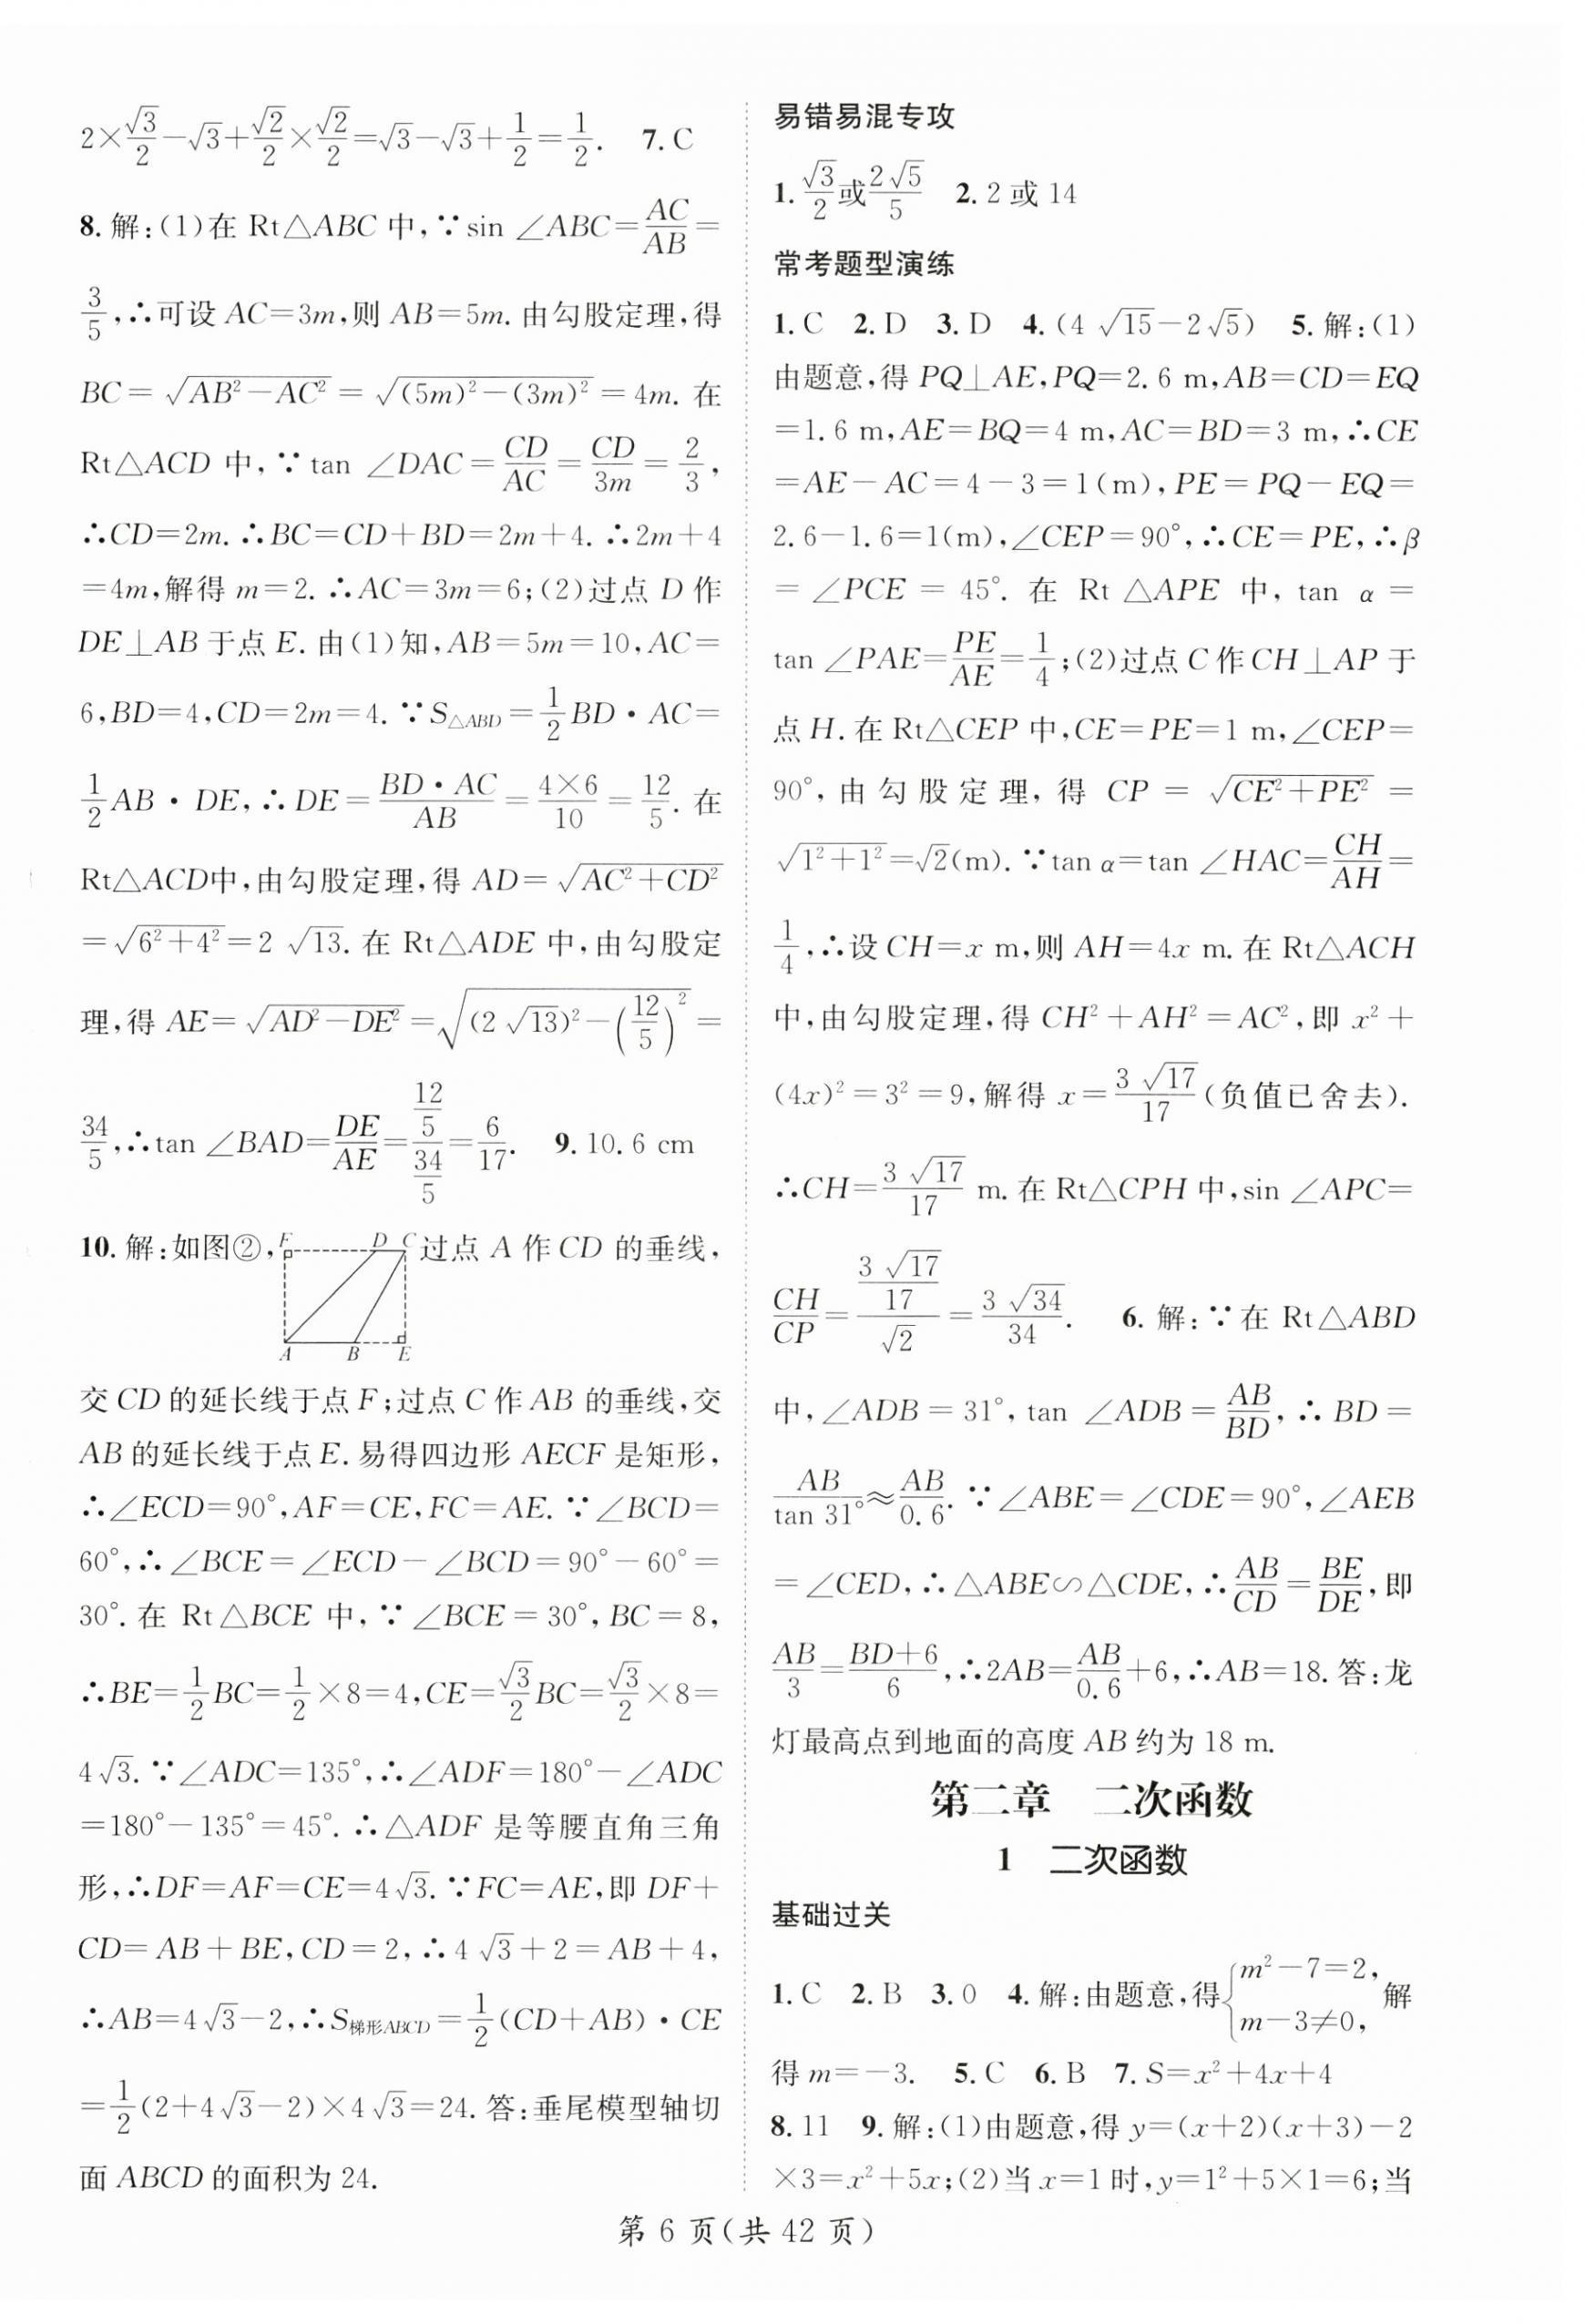 2×√3/2−√3+√2/2×√2/2=√3−√3+1/2=1/2. 7.C
8.解:(1)在 Rt△ABC 中,∵sin ∠ABC=AC/AB=
3/5,∴可设 AC=3m,则 AB=5m.由勾股定理,得
BC=√(AB²−AC²)=√((5m)²−(3m)²)=4m.在
Rt△ACD 中,∵tan ∠DAC=CD/AC=CD/3m=2/3,
∴CD=2m.∴BC=CD+BD=2m+4.∴2m+4
=4m,解得 m=2.∴AC=3m=6;(2)过点 D 作
DE⊥AB 于点 E.由(1)知,AB=5m=10,AC=
6,BD=4,CD=2m=4.∵S△ABD=1/2BD·AC=
1/2AB·DE,∴DE=BD·AC/AB=4×6/10=12/5.在
Rt△ACD中,由勾股定理,得 AD=√(AC²+CD²)
=√(6²+4²)=2√13.在 Rt△ADE 中,由勾股定
理,得 AE=√(AD²−DE²)=√((2√13)²−(12/5)²)=
34/5,∴tan ∠BAD=DE/AE=(12/5)/(34/5)=6/17. 9.10.6 cm
10.解:如图②,过点 A 作 CD 的垂线,
F D C
A B E
交 CD 的延长线于点 F;过点 C 作 AB 的垂线,交
AB 的延长线于点 E.易得四边形 AECF 是矩形,
∴∠ECD=90°,AF=CE,FC=AE.∵∠BCD=
60°,∴∠BCE=∠ECD−∠BCD=90°−60°=
30°.在 Rt△BCE 中,∵∠BCE=30°,BC=8,
∴BE=1/2BC=1/2×8=4,CE=√3/2BC=√3/2×8=
4√3.∵∠ADC=135°,∴∠ADF=180°−∠ADC
=180°−135°=45°.∴△ADF 是等腰直角三角
形,∴DF=AF=CE=4√3.∵FC=AE,即 DF+
CD=AB+BE,CD=2,∴4√3+2=AB+4,
∴AB=4√3−2,∴S梯形ABCD=1/2(CD+AB)·CE
=1/2(2+4√3−2)×4√3=24.答:垂尾模型轴切
面 ABCD 的面积为 24.
易错易混专攻
1.√3/2或2√5/5 2.2 或 14
常考题型演练
1.C 2.D 3.D 4.(4√15−2√5) 5.解:(1)
由题意,得 PQ⊥AE,PQ=2.6 m,AB=CD=EQ
=1.6 m,AE=BQ=4 m,AC=BD=3 m,∴CE
=AE−AC=4−3=1(m),PE=PQ−EQ=
2.6−1.6=1(m),∠CEP=90°,∴CE=PE,∴β
=∠PCE=45°.在 Rt△APE 中,tan α=
tan ∠PAE=PE/AE=1/4;(2)过点 C 作 CH⊥AP 于
点 H.在 Rt△CEP 中,CE=PE=1 m,∠CEP=
90°,由勾股定理,得 CP=√(CE²+PE²)=
√(1²+1²)=√2(m).∵tan α=tan ∠HAC=CH/AH=
1/4,∴设 CH=x m,则 AH=4x m.在 Rt△ACH
中,由勾股定理,得 CH²+AH²=AC²,即 x²+
(4x)²=3²=9,解得 x=3√17/17(负值已舍去).
∴CH=3√17/17 m.在 Rt△CPH 中,sin ∠APC=
CH/CP=(3√17/17)/√2=3√34/34. 6.解:∵在 Rt△ABD
中,∠ADB=31°,tan ∠ADB=AB/BD,∴BD=
AB/tan 31°≈AB/0.6.∵∠ABE=∠CDE=90°,∠AEB
=∠CED,∴△ABE∽△CDE,∴AB/CD=BE/DE,即
AB/3=(BD+6)/6,∴2AB=AB/0.6+6,∴AB=18.答:龙
灯最高点到地面的高度 AB 约为 18 m.
第二章 二次函数
1 二次函数
基础过关
1.C 2.B 3.0 4.解:由题意,得{m²−7=2, m−3≠0, 解
得 m=−3. 5.C 6.B 7.S=x²+4x+4
8.11 9.解:(1)由题意,得 y=(x+2)(x+3)−2
×3=x²+5x;(2)当 x=1 时,y=1²+5×1=6;当
第 6 页(共 42 页)